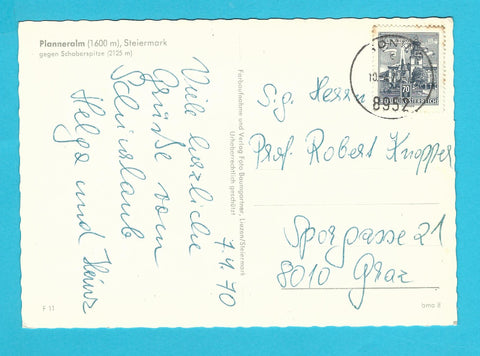 Planneralm (1600 m), Steiermark
gegen Schoberspitze (2125 m)
7.1.70
Viele herzliche
Grüße vom
Schiurlaub
Helga und Heinz
Farbaufnahme und Verlag Foto Baumgartner, Liezen/Steiermark
Urheberrechtlich geschützt
8952
70
Sg. Herrn
Prof. Robert Knopper
Sporgasse 21
8010 Graz
F 11
bma 8